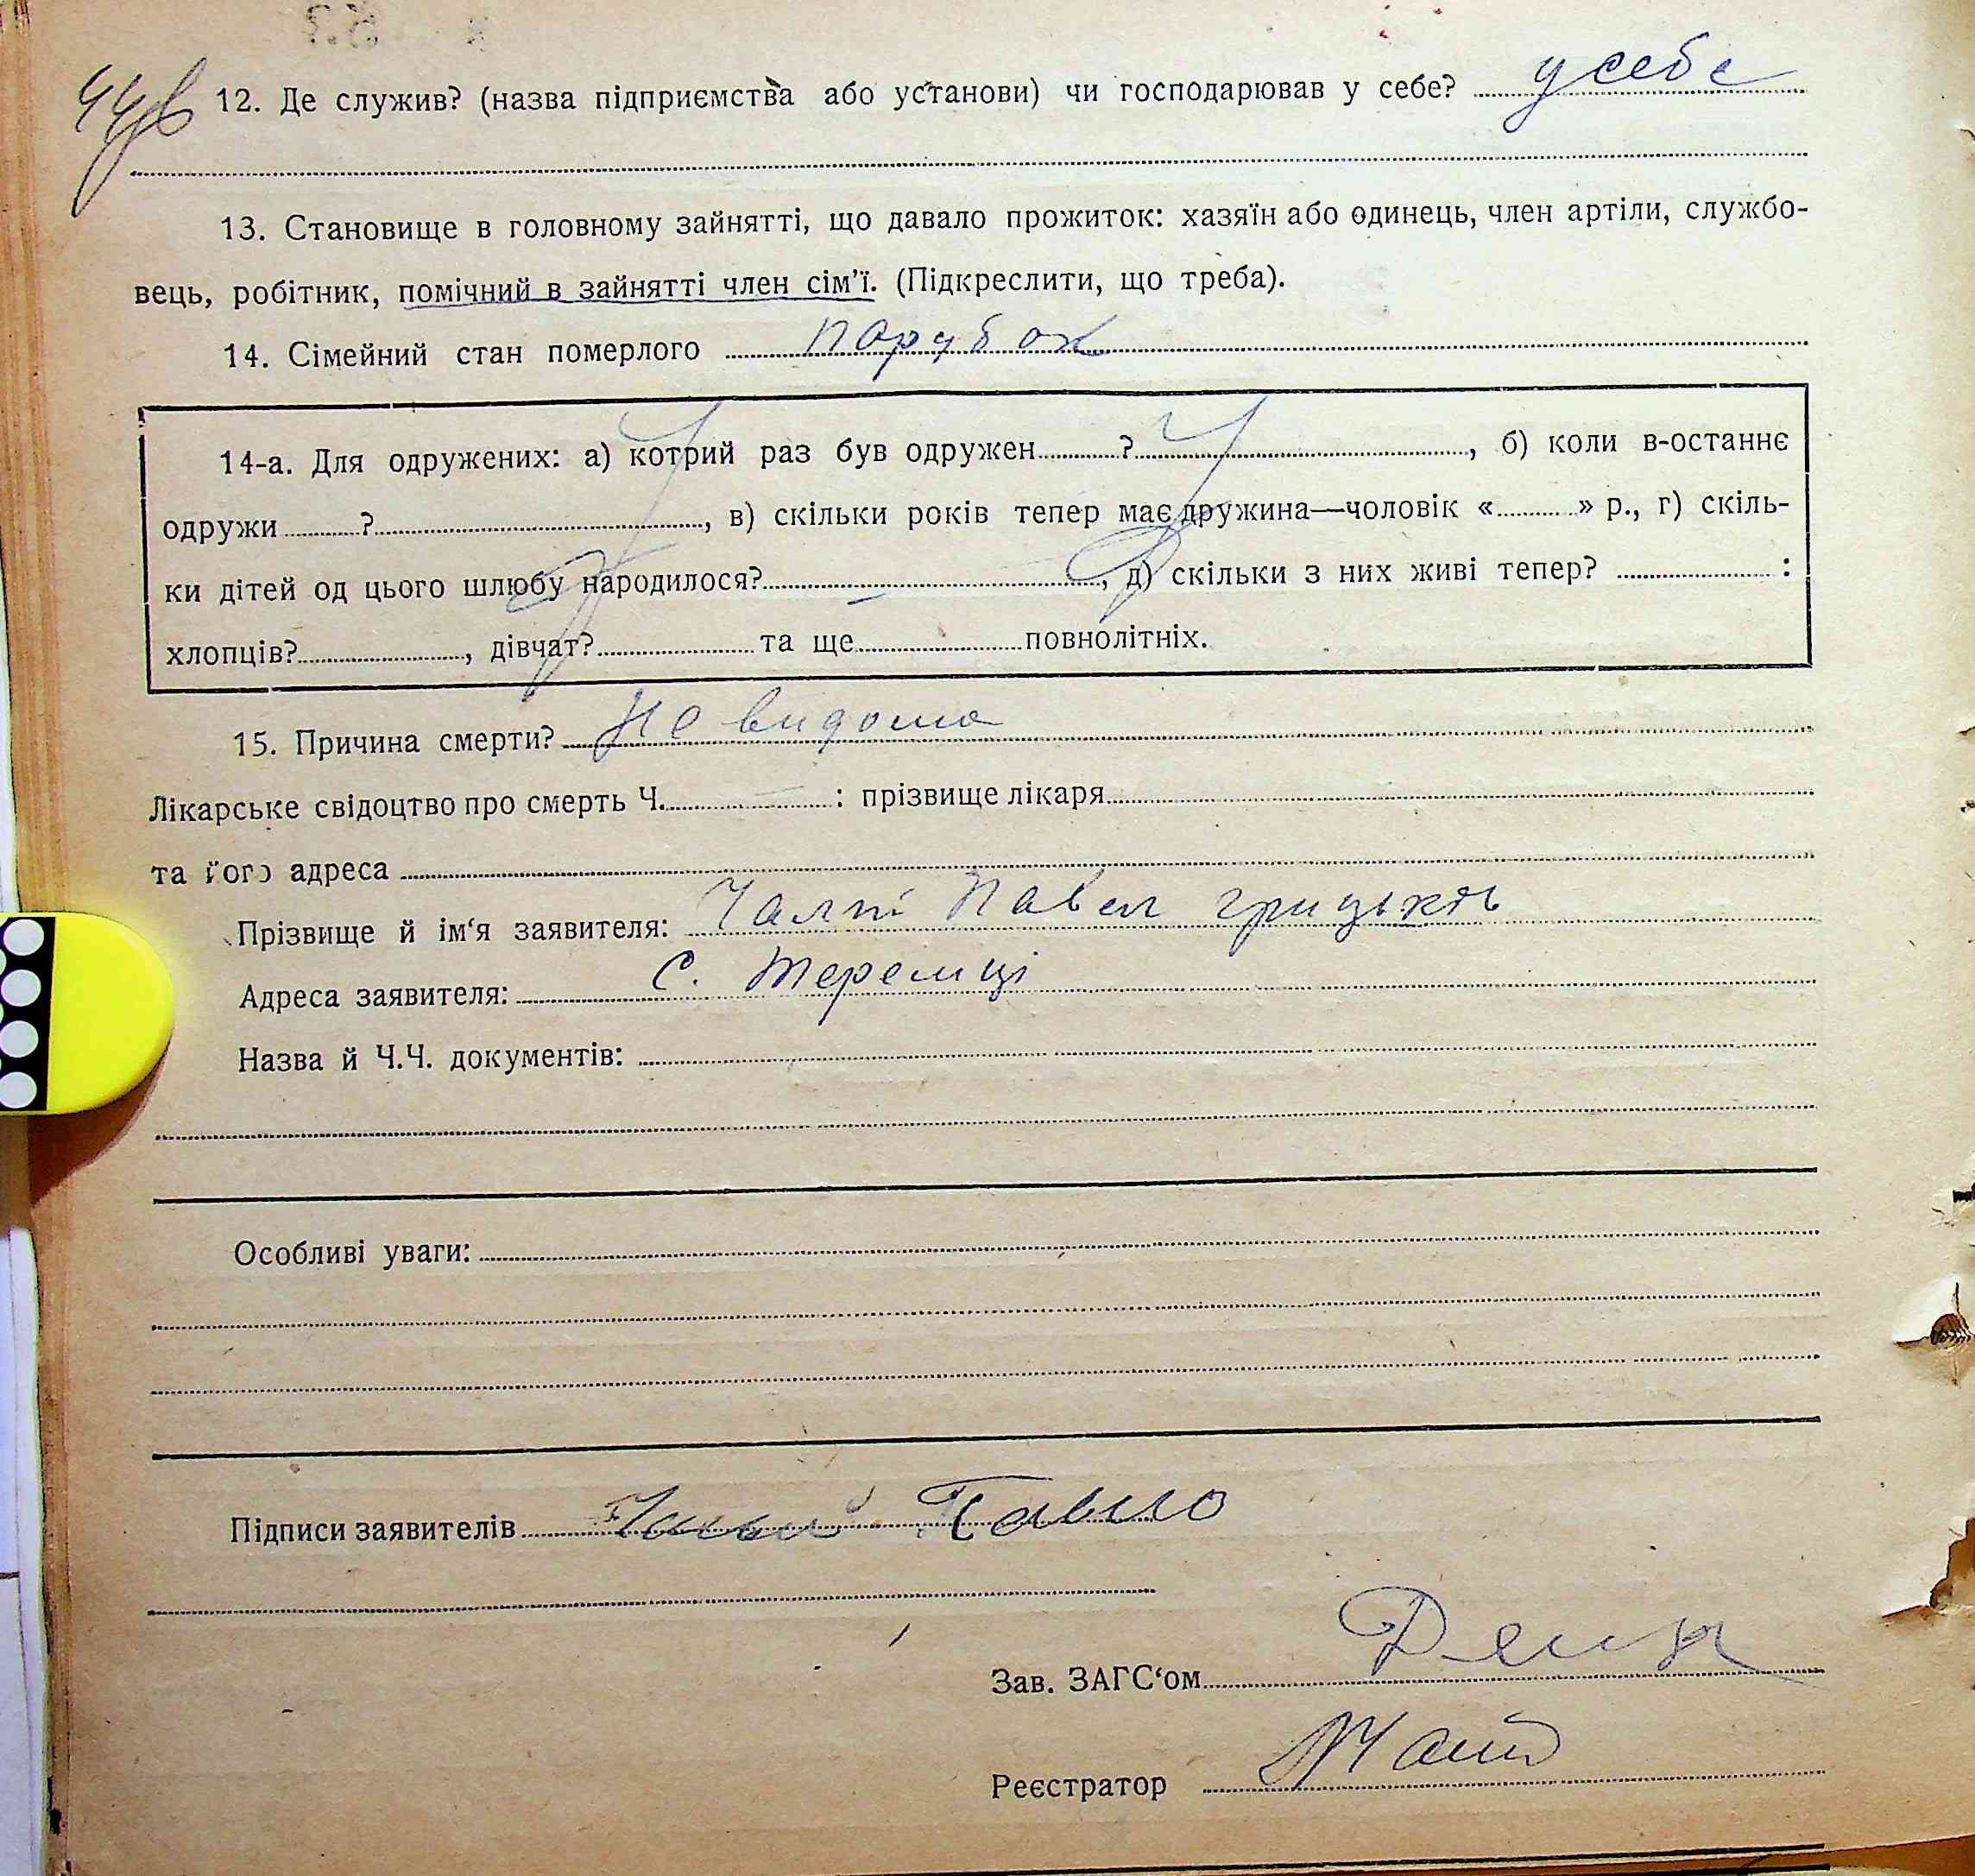 44зв 12. Де служив? (назва підприємства або установи) чи господарював у себе? у себе
13. Становище в головному зайнятті, що давало прожиток: хазяїн або одинець, член артіли, службо-
вець, робітник, помічний в зайнятті член сім’ї. (Підкреслити, що треба).
14. Сімейний стан померлого парубок
14-а. Для одружених: а) котрий раз був одружен ? , б) коли в-останнє
одружи ? , в) скільки років тепер має дружина—чоловік « » р., г) скіль-
ки дітей од цього шлюбу народилося? , д) скільки з них живі тепер? :
хлопців? , дівчат? та ще повнолітніх.
15. Причина смерти? не видома
Лікарське свідоцтво про смерть Ч. : прізвище лікаря
та його адреса
Прізвище й ім‘я заявителя: Павел
Адреса заявителя: с. Теремці
Назва й Ч.Ч. документів:
Особливі уваги:
Підписи заявителів Павло
Зав. ЗАГС‘ом
Реєстратор